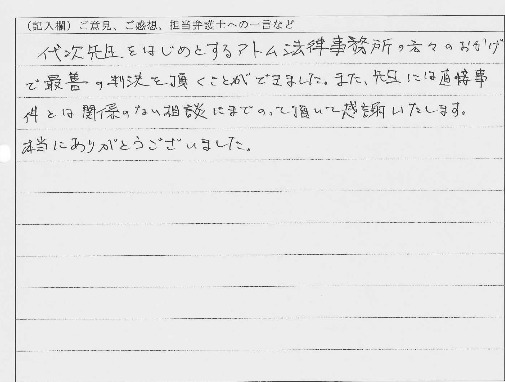 (記入欄)ご意見、ご感想、担当弁護士への一言など
代次先生をはじめとするアトム法律事務所の方々のおかげ
で最善の判決を頂くことができました。また、先生には直接事
件とは関係のない相談にまでのって頂いて感謝いたします。
本当にありがとうございました。